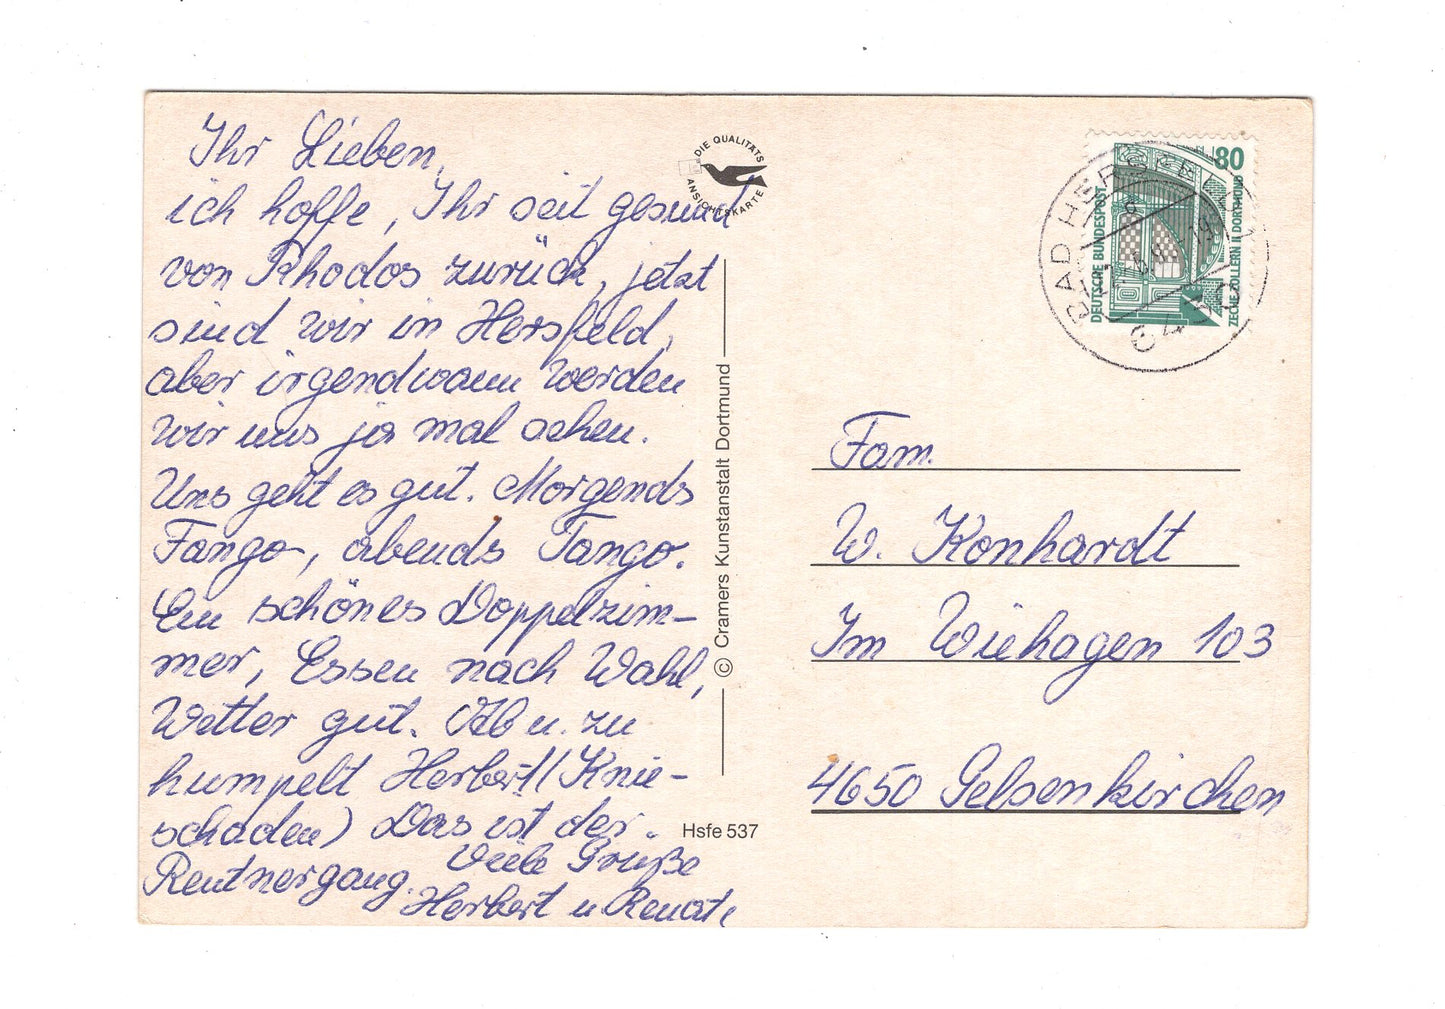 Ihr Lieben,
ich hoffe, Ihr seit gesund
von Rhodos zurück, jetzt
sind wir in Hersfeld,
aber irgendwann werden
wir uns ja mal sehen.
Uns geht es gut. Morgends
Fango, abends Tango.
Ein schönes Doppelzim-
mer, Essen nach Wahl,
Wetter gut. Ab u. zu
humpelt Herbert (Knie-
schaden) Das ist der
Rentnergang. Viele Grüße
Herbert u Renate
DIE QUALITÄTS
ANSICHTSKARTE
© Cramers Kunstanstalt Dortmund
Hsfe 537
80
DEUTSCHE BUNDESPOST
ZECHE ZOLLERN II DORTMUND
BAD HERSFELD
6430
Fam.
W. Konhardt
Im Wiehagen 103
4650 Gelsenkirchen